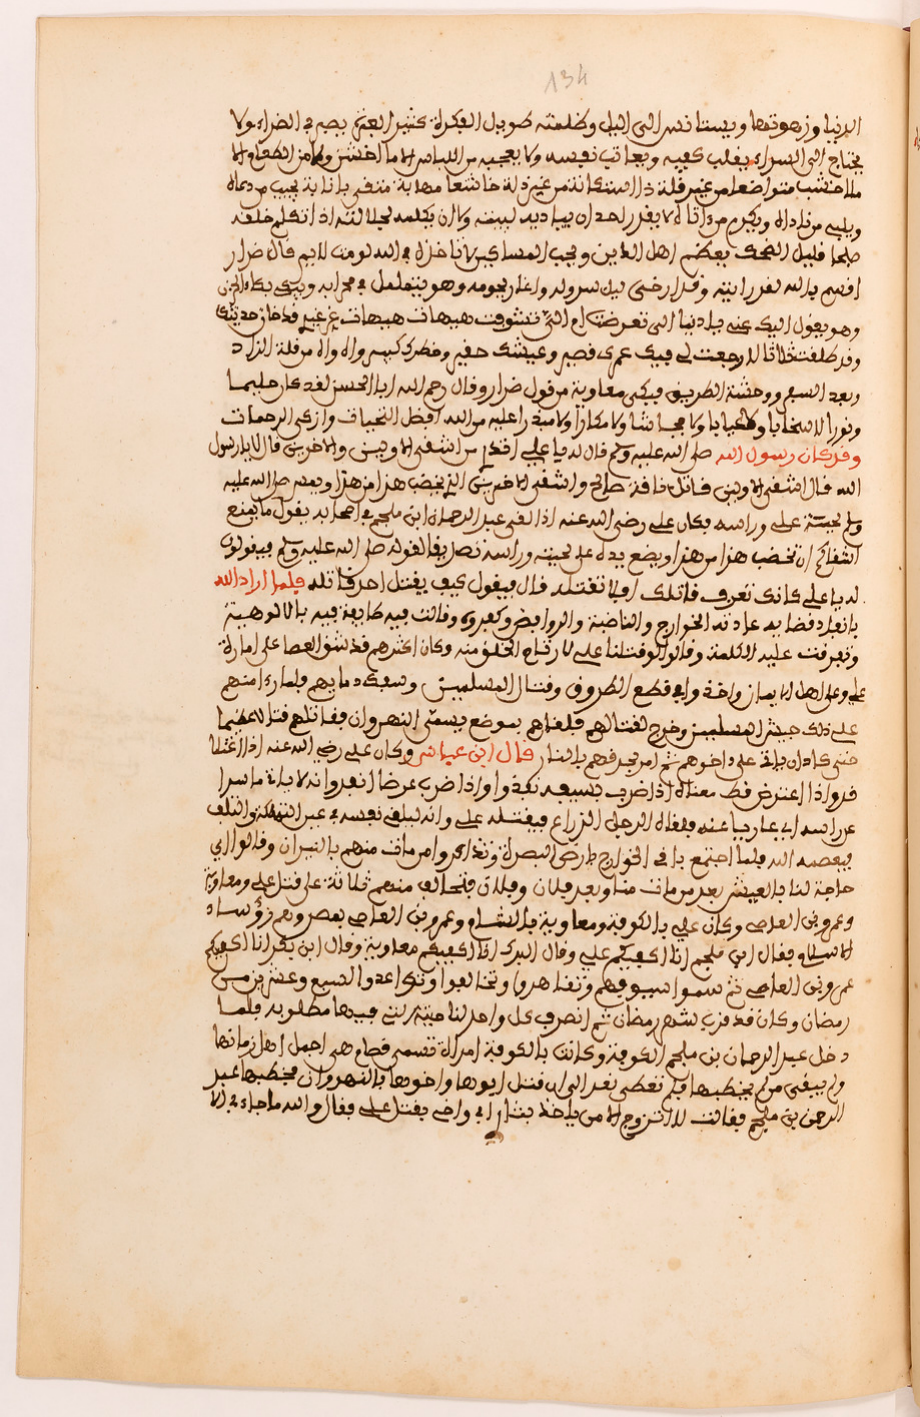 134
الدنيا وزهرتها ويستانس الى الليل وظلمته طويل الفكرة كثير الغم يصبر في الضراء ولا
يحتاج الى السراء يقلب كفيه ويعاتب نفسه ولا يعجبه من اللباس الا ما اخشن ولا من الطعام الا
ما اخشب متواضعا من غير قلة ذا استكانة من غير ذلة خاشعا مهابة متقي بانابة يجيب من دعاه
ويلبي من ناداه ويكرم من اتاه لا يقدر احد ان يباديه لهيبته ولا ان يكلمه لجلالته اذا تكلم خلفه
ضاحكا قليل الضحك يعظم اهل الدين ويحب المساكين لا تاخذه في الله لومة لايم قال ضرار
اقسم بالله لقد رايته وقد ارخى ليل سدوله واغار نجومه وهو يتململ في محرابه ويبكي بكاء الحزين
وهو يقول اليك عني يا دنيا الي تعرضت ام الي تشوقت هيهات هيهات غر غيري قد خان حديثك
وقد طلقت ثلاثا لا رجعت لي فيك عمرك قصير وعيشك حقير وخطرك كبير واه واه من قلة الزاد
وبعد السفر ووحشة الطريق فبكى معاوية من قول ضرار وقال رحم الله ابا الحسن لقد كان حليما
ونورا لا سخابا ولا عيابا ولا فحاشا ولا مكارا ولا مبذرا عليه من الله افضل التحيات وازكى الرحمات
وقد كان رسول الله صلى الله عليه وسلم قال له يا علي اتدري من اشقى الاولين والاخرين قال لا يا رسول
الله قال اشقى الاولين قاتل ناقة صالح واشقى الاخرين الذي يخضب هذا من هذا ويمد صلى الله عليه
وسلم لحيته علي وراسه فكان علي رضي الله عنه اذا لقى عبد الرحمان ابن ملجم في اصحابه يقول ما يمنع
اشقاكم ان تخضب هذا من هذا ويضع يده على لحيته وراسه تصديقا لقوله صلى الله عليه وسلم فيقولون
له يا علي كانك تعرف قاتلك افلا تقتله قال فيقول كيف يقتل احد قاتله فلما اراد الله
بانفاد قضايه عادته الخوارج والناصبة والروافض وكفروه وقالت فيه طايفة فيه بالالوهية
وتفرقت عليه الكلمة وقالوا لو قتلنا علي لارتاح الخلق منه وكان اكثرهم قد شق العصا على امارة
علي وعلى اهل الايمان واخذوا في قطع الطروق وقتال المسلمين وسفك دمايهم فلما راى منهم
على ذلك جيش المسلمين وخرج لقتالهم فلقاهم بموضع يسمى النهروان فقاتلهم قتلا عظيما
حتى كاد ان ياتي على داخرهم ثم امر بحرقهم بالنار قال ابن عباس وكان علي رضي الله عنه اذا اعتلا
قد واذا اعترض قط معناه اذا ضرب بسيفه نفذ واذا ضرب عرضا انفد وانه لا ياتي ماسرا
عن راسه ابي عاريا عنه فلقاه الرجل الزراع فيقتله علي وانه ليلقي نفسه في عين التهلكة والتلف
فيعصمه الله فلما اجتمع باقي الخوارج بارض البصرة وتذاكروا من مات منهم بالنيران وقالوا اي
حاجة لنا بالعيش بعد من مات منا وبعد فلان وفلان فتحالف منهم ثلاثة على قتل علي ومعاوية
وعمرو بن العاصي وكان علي بالكوفة ومعاوية بالشام وعمرو بن العاصي بمصر وهم رؤساء
الاسلام فقال ابن ملجم انا اكفيكم علي وقال البرك انا اكفيكم معاوية وقال ابن بكر انا اكفيكم
عمرو بن العاصي ثم سموا سيوفهم وتعاهدوا وتحالفوا وتواعدوا السبع وعشر من
رمضان وكان قد قرب شهر رمضان ثم انصرف كل واحد لناحيته التي فيها مطلوبه فلما
دخل عبد الرحمان بن ملجم الكوفة وكانت بالكوفة امراة تسمى قطام هي اجمل اهل زمانها
ولم يبقى من لم يخطبها فلم تعطى نفد الى ان قتل ابوها واخوها بالنهروان فخطبها عبد
الرحمن بن ملجم فقالت لا اتزوج الا من ياخذ بثار ابي واخي بقتل علي فقال والله ما جاء في الا